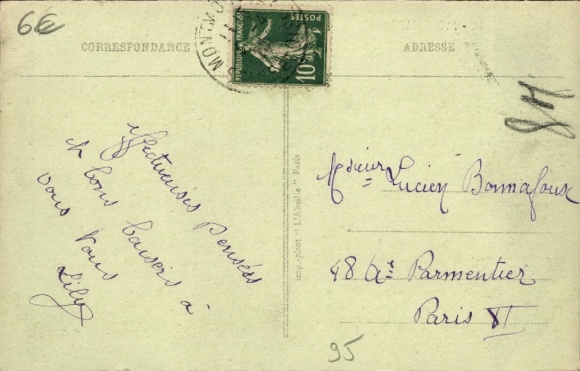 6€
CORRESPONDANCE
ADRESSE
RÉPUBLIQUE FRANÇAISE
10c
POSTES
affectueuses Pensées
et bons baisers à
vous tous
Lily
Imp.-phot "L'Abeille" - Paris
Msieur Lucien Bonnafoux
48 Av. Parmentier
Paris XI
95